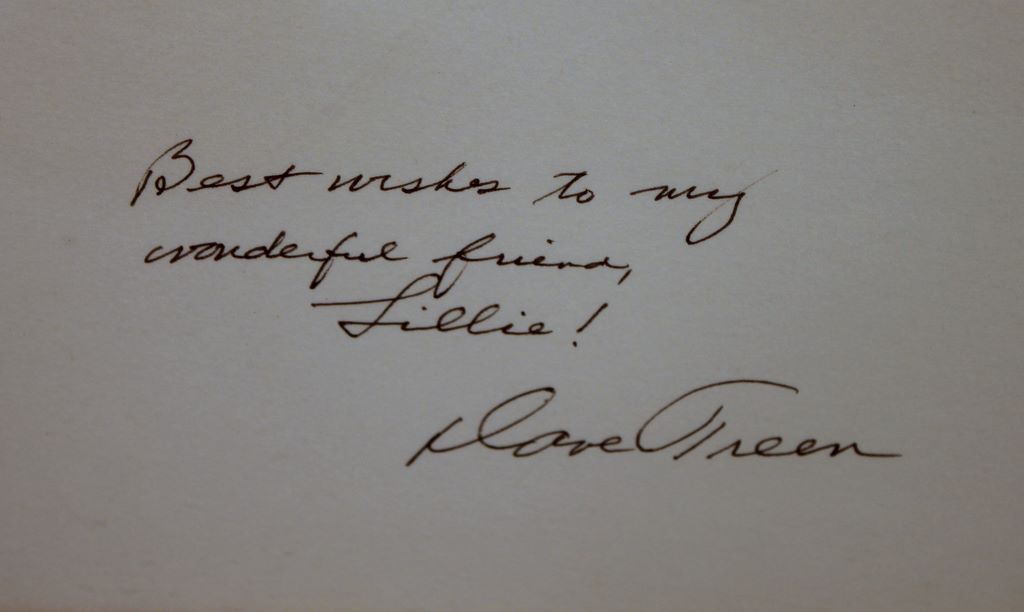 Best wishes to my
wonderful friend,
Lillie!
Dave Treen